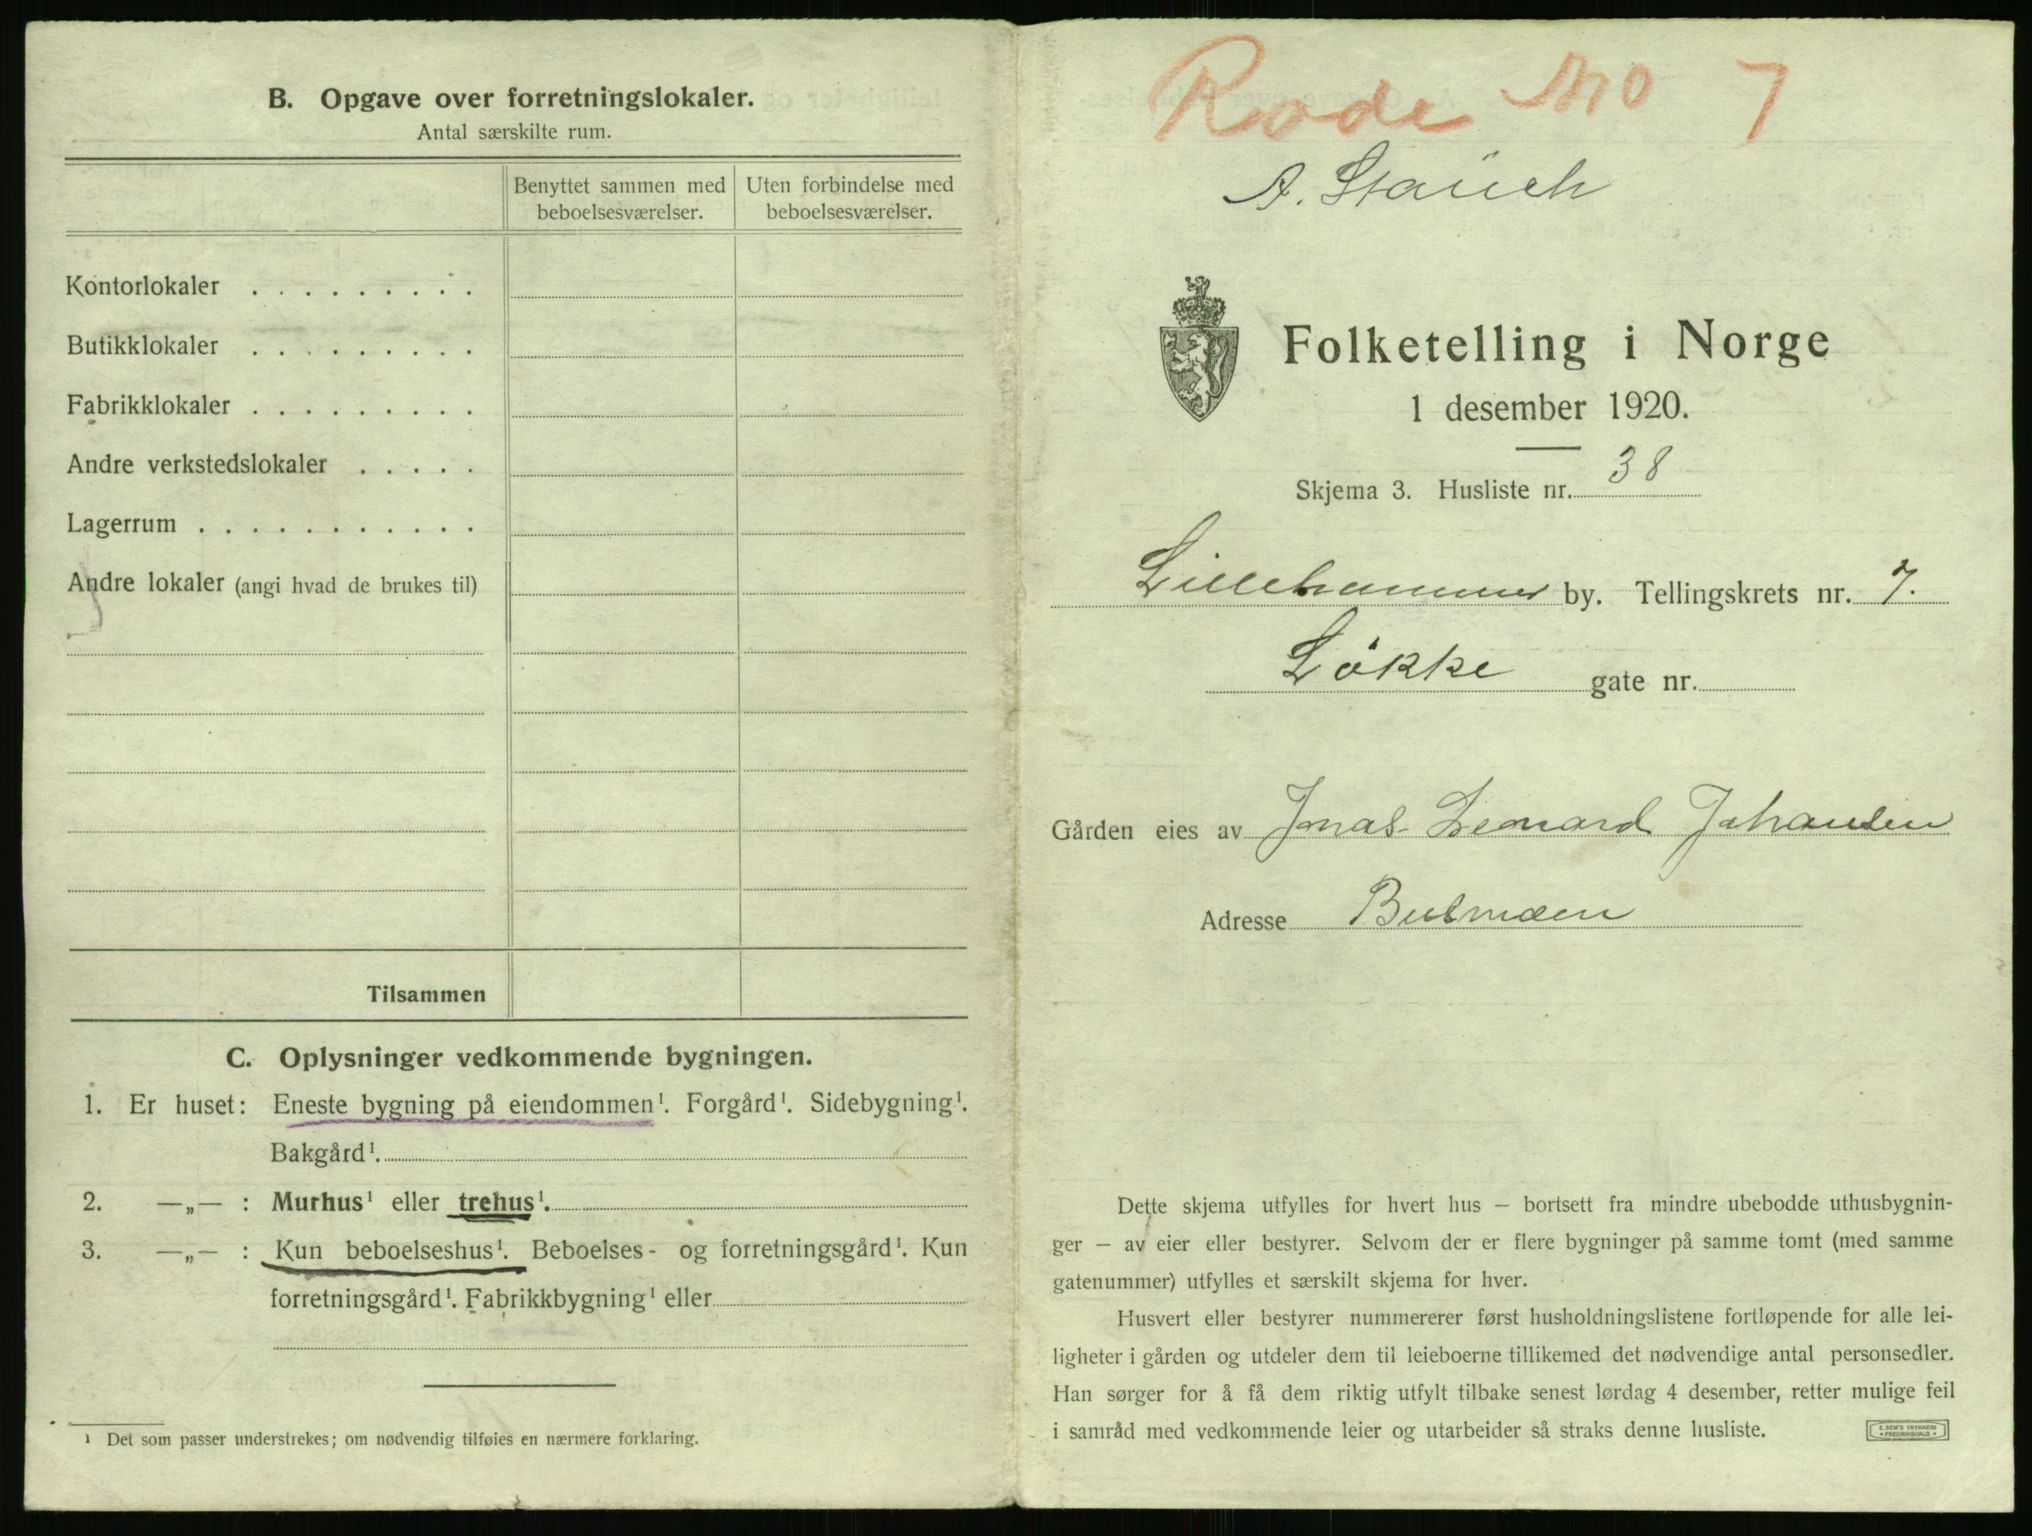 B. Opgave over forretningslokaler.
Antal særskilte rum.
Benyttet sammen med beboelsesværelser.
Uten forbindelse med beboelsesværelser.
Kontorlokaler . . . . . . . . .
Butikklokaler . . . . . . . . .
Fabrikklokaler . . . . . . . . .
Andre verkstedslokaler . . . . .
Lagerrum . . . . . . . . . . .
Andre lokaler (angi hvad de brukes til)
Tilsammen
C. Oplysninger vedkommende bygningen.
1. Er huset: Eneste bygning på eiendommen¹. Forgård¹. Sidebygning¹.
Bakgård¹.
2. —„— : Murhus¹ eller trehus¹.
3. —„— : Kun beboelseshus¹. Beboelses- og forretningsgård¹. Kun
forretningsgård¹. Fabrikkbygning¹ eller
¹ Det som passer understrekes; om nødvendig tilføies en nærmere forklaring.
Rode No 7
A. Stauch
Folketelling i Norge
1 desember 1920.
Skjema 3. Husliste nr. 38
Lillehammer by. Tellingskrets nr. 7.
Løkke gate nr.
Gården eies av Jonas Leonard Johansen
Adresse
Dette skjema utfylles for hvert hus — bortsett fra mindre ubebodde uthusbygnin-
ger — av eier eller bestyrer. Selvom der er flere bygninger på samme tomt (med samme
gatenummer) utfylles et særskilt skjema for hver.
Husvert eller bestyrer nummererer først husholdningslistene fortløpende for alle lei-
ligheter i gården og utdeler dem til leieboerne tillikemed det nødvendige antal personsedler.
Han sørger for å få dem riktig utfylt tilbake senest lørdag 4 desember, retter mulige feil
i samråd med vedkommende leier og utarbeider så straks denne husliste.
E. SEM'S TRYKKERI
FREDRIKSHALD